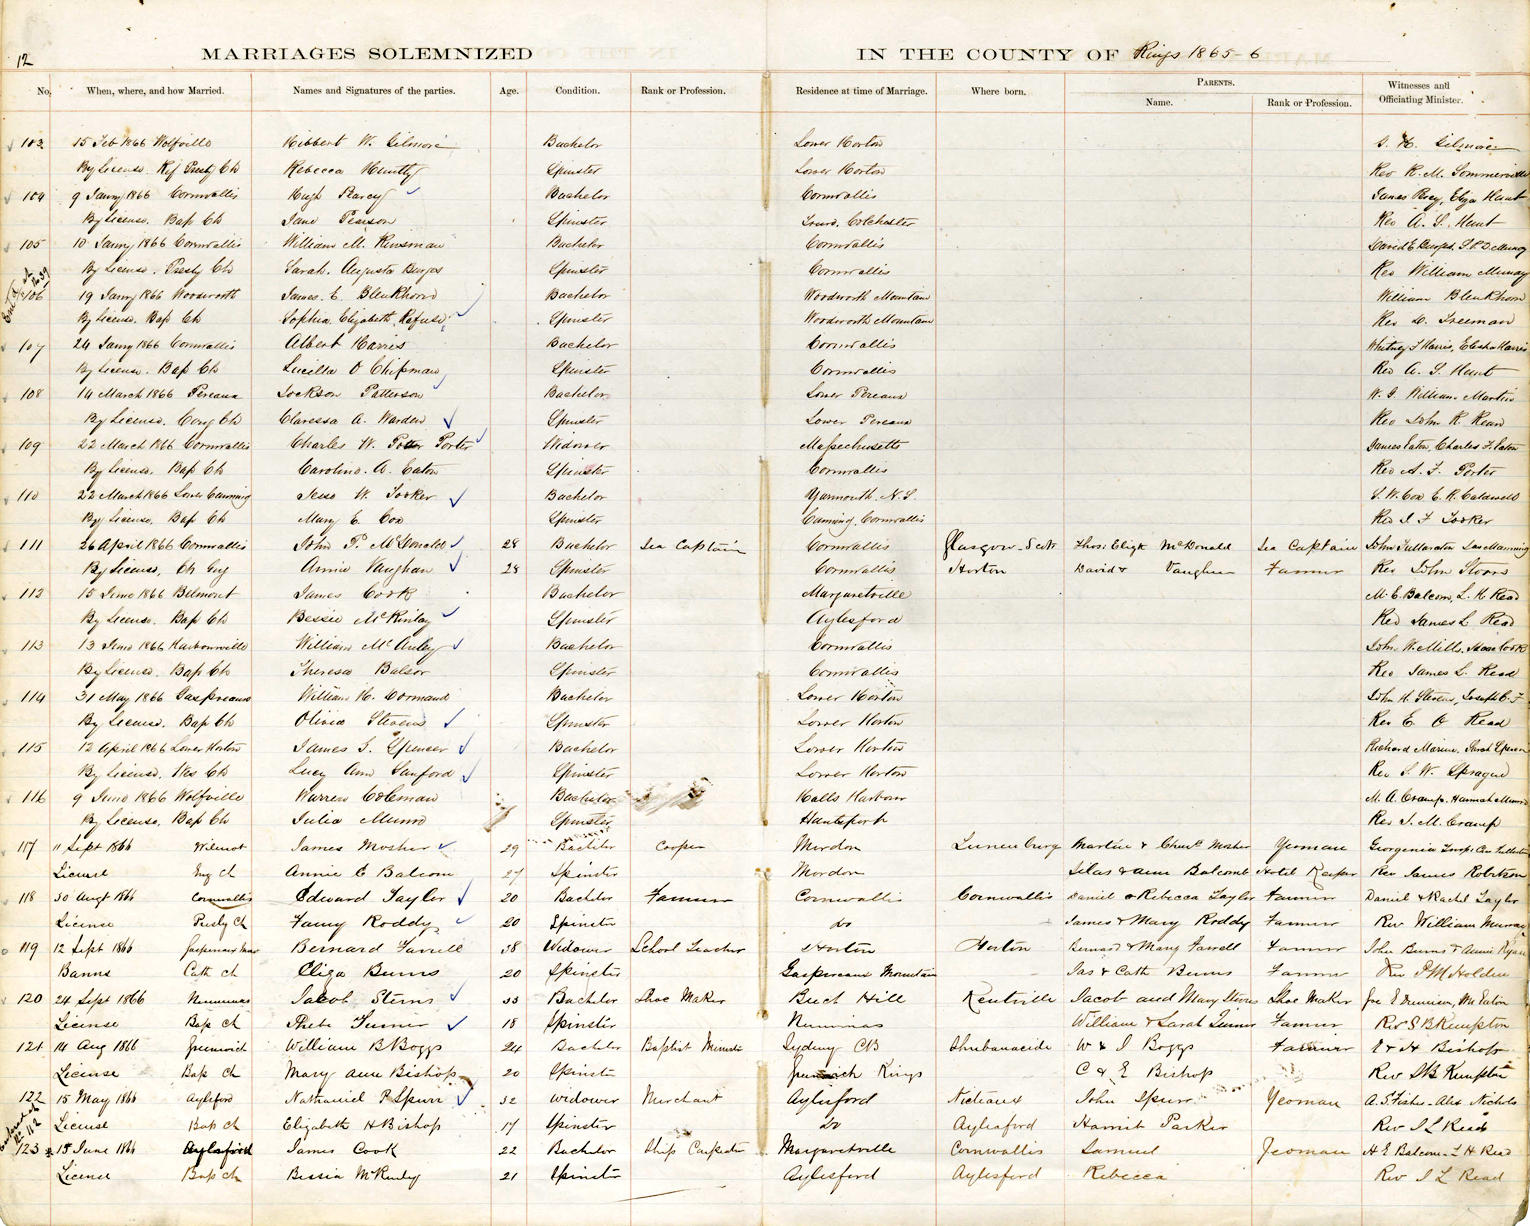 12
MARRIAGES SOLEMNIZED IN THE COUNTY OF Kings 1865-6
No. When, where, and how Married. Names and Signatures of the parties. Age. Condition. Rank or Profession. Residence at time of Marriage. Where born. PARENTS. Witnesses and Officiating Minister.
Name. Rank or Profession.
103 15 Feb 1866 Wolfville Hibbert W. Gilmore Bachelor Lower Horton Gilmore
By License. Ref Presby Ch Rebecca Huntly Spinster Lower Horton Rev R. M. Sommerville
104 9 Janry 1866 Cornwallis Hugh Pearcy Bachelor Cornwallis James Eliza Hunt
By License. Bap Ch Jane Pearson Spinster Truro. Colchester Rev A. S. Hunt
105 10 Janry 1866 Cornwallis William M. Kinsman Bachelor Cornwallis David E Burges
By License. Presby Ch Sarah. Augusta Burges Spinster Cornwallis Rev William Murray
106 19 Janry 1866 Woodworth James. E. Blenkhorn Bachelor Woodworth Mountain William Blenkhorn
By License. Bap Ch Sophia Elizabeth Refuse Spinster Woodworth Mountain Rev D. Freeman
107 24 Janry 1866 Cornwallis Albert Harris Bachelor Cornwallis Whitney T Harris, Elisha Harris
By License. Bap Ch Lucilla O Chipman Spinster Cornwallis Rev A. S. Hunt
108 14 March 1866 Pereaux Jockson Patterson Bachelor Lower Pereaux W. J. William. Martin
By License. Cong Ch Claressa A. Warden Spinster Lower Pereaux Rev John R. Kean
109 22 March 1866 Cornwallis Charles W. Porter Widower Massachusetts James Eaton, Charles F. Eaton
By License. Bap Ch Caroline. A. Eaton Spinster Cornwallis Rev A. F. Porter
110 22 March 1866 Lower Canning Jesse W. Tooker Bachelor Yarmouth N. S. S. W. Cox E. R. Caldwell
By License, Bap Ch Mary E. Cox Spinster Canning, Cornwallis Rev J F Tooker
111 26 April 1866 Cornwallis John P. McDonald 28 Bachelor Sea Captain Cornwallis Glasgow. Scott Thos. Eliza McDonald Sea Captain John Fullarton Manning
By License, Ch Eng Annie Vaughan 28 Spinster Cornwallis Horton David & Vaughan Farmer Rev John Storrs
112 15 June 1866 Belmont James Cook Bachelor Margaretville M. E. Balcom, L. H. Read
By License. Bap Ch Bessie McKinlay Spinster Aylesford Rev James L Read
113 13 June 1866 Harbourville William McAuley Bachelor Cornwallis John W. Mills, Isaac Cook
By License. Bap Ch Theresa Balsor Spinster Cornwallis Rev James L. Read
114 31 May 1866 Gaspereaux William H. Cormand Bachelor Lower Horton John H. Stevens, Joseph
By License. Bap Ch Olivia Stevens Spinster Lower Horton Rev E. O Read
115 12 April 1866 Lower Horton James S. Spenser Bachelor Lower Horton Richard Sarah Spencer
By License. Wes Ch Lucy Ann Sanford Spinster Lower Horton Rev S. W. Sprague
116 9 June 1866 Wolfville Warren Coleman Bachelor Halls Harbour M. A. Cramp, Hannah Munro
By License, Bap Ch Julia Munro Spinster Hantsport Rev J. M. Cramp
117 11 Sept 1866 Wilmot James Mosher 29 Bachelor Cooper Mordon Lunenburg Martin & Mosher Yeoman Georgenia
License Eng Ch Annie E Balcom 27 Spinster Mordon Silas & Anne Balcomb Hotel Keeper Rev James Robertson
118 30 Augt 1866 Cornwallis Edward Taylor 20 Bachelor Farmer Cornwallis Cornwallis Daniel & Rebecca Taylor Farmer Daniel & Rachel Taylor
License Presby Ch Fanny Roddy 20 Spinster do James & Mary Roddy Farmer Rev William Murray
119 12 Sept 1866 Gaspereaux Bernard Farrell 38 Widower School Teacher Horton Horton Bernard & Mary Farrell Farmer John Burns & Annie Ryan
Banns Cath Ch Eliza Burns 20 Spinster Gaspereaux Mountain Jas & Cath Burns Farmer Rev P M Holden
120 24 Sept 1866 Newminas Jacob Sterns 33 Bachelor Shoe Maker Beech Hill Kentville Jacob and Mary Sterns Shoe Maker
License Bap Ch Phebe Turner 18 Spinster Newminas William & Sarah Turner Farmer Rev S B Kempton
121 14 Aug 1866 Greenwich William B Boggs 24 Bachelor Baptist Minister Sydney CB Shubanacide W & J Boggs Farmer Bishop
License Bap Ch Mary Anne Bishop 20 Spinster Greenwich Kings C & E Bishop Rev S B Kempton
122 15 May 1866 Aylesford Nathaniel P Spurr 32 Widower Merchant Aylesford Nictaux John Spurr Yeoman A. S Fisher Alex Nichols
License Bap Ch Elizabeth H Bishop 17 Spinster Do Aylesford Harriet Parker Rev J L Read
123 15 June 1866 Aylesford James Cook 22 Bachelor Ship Carpenter Margaretville Cornwallis Samuel Yeoman H E Balcom L H Read
License Bap Ch Bessia McKinley 21 Spinster Aylesford Aylesford Rebecca Rev J L Read